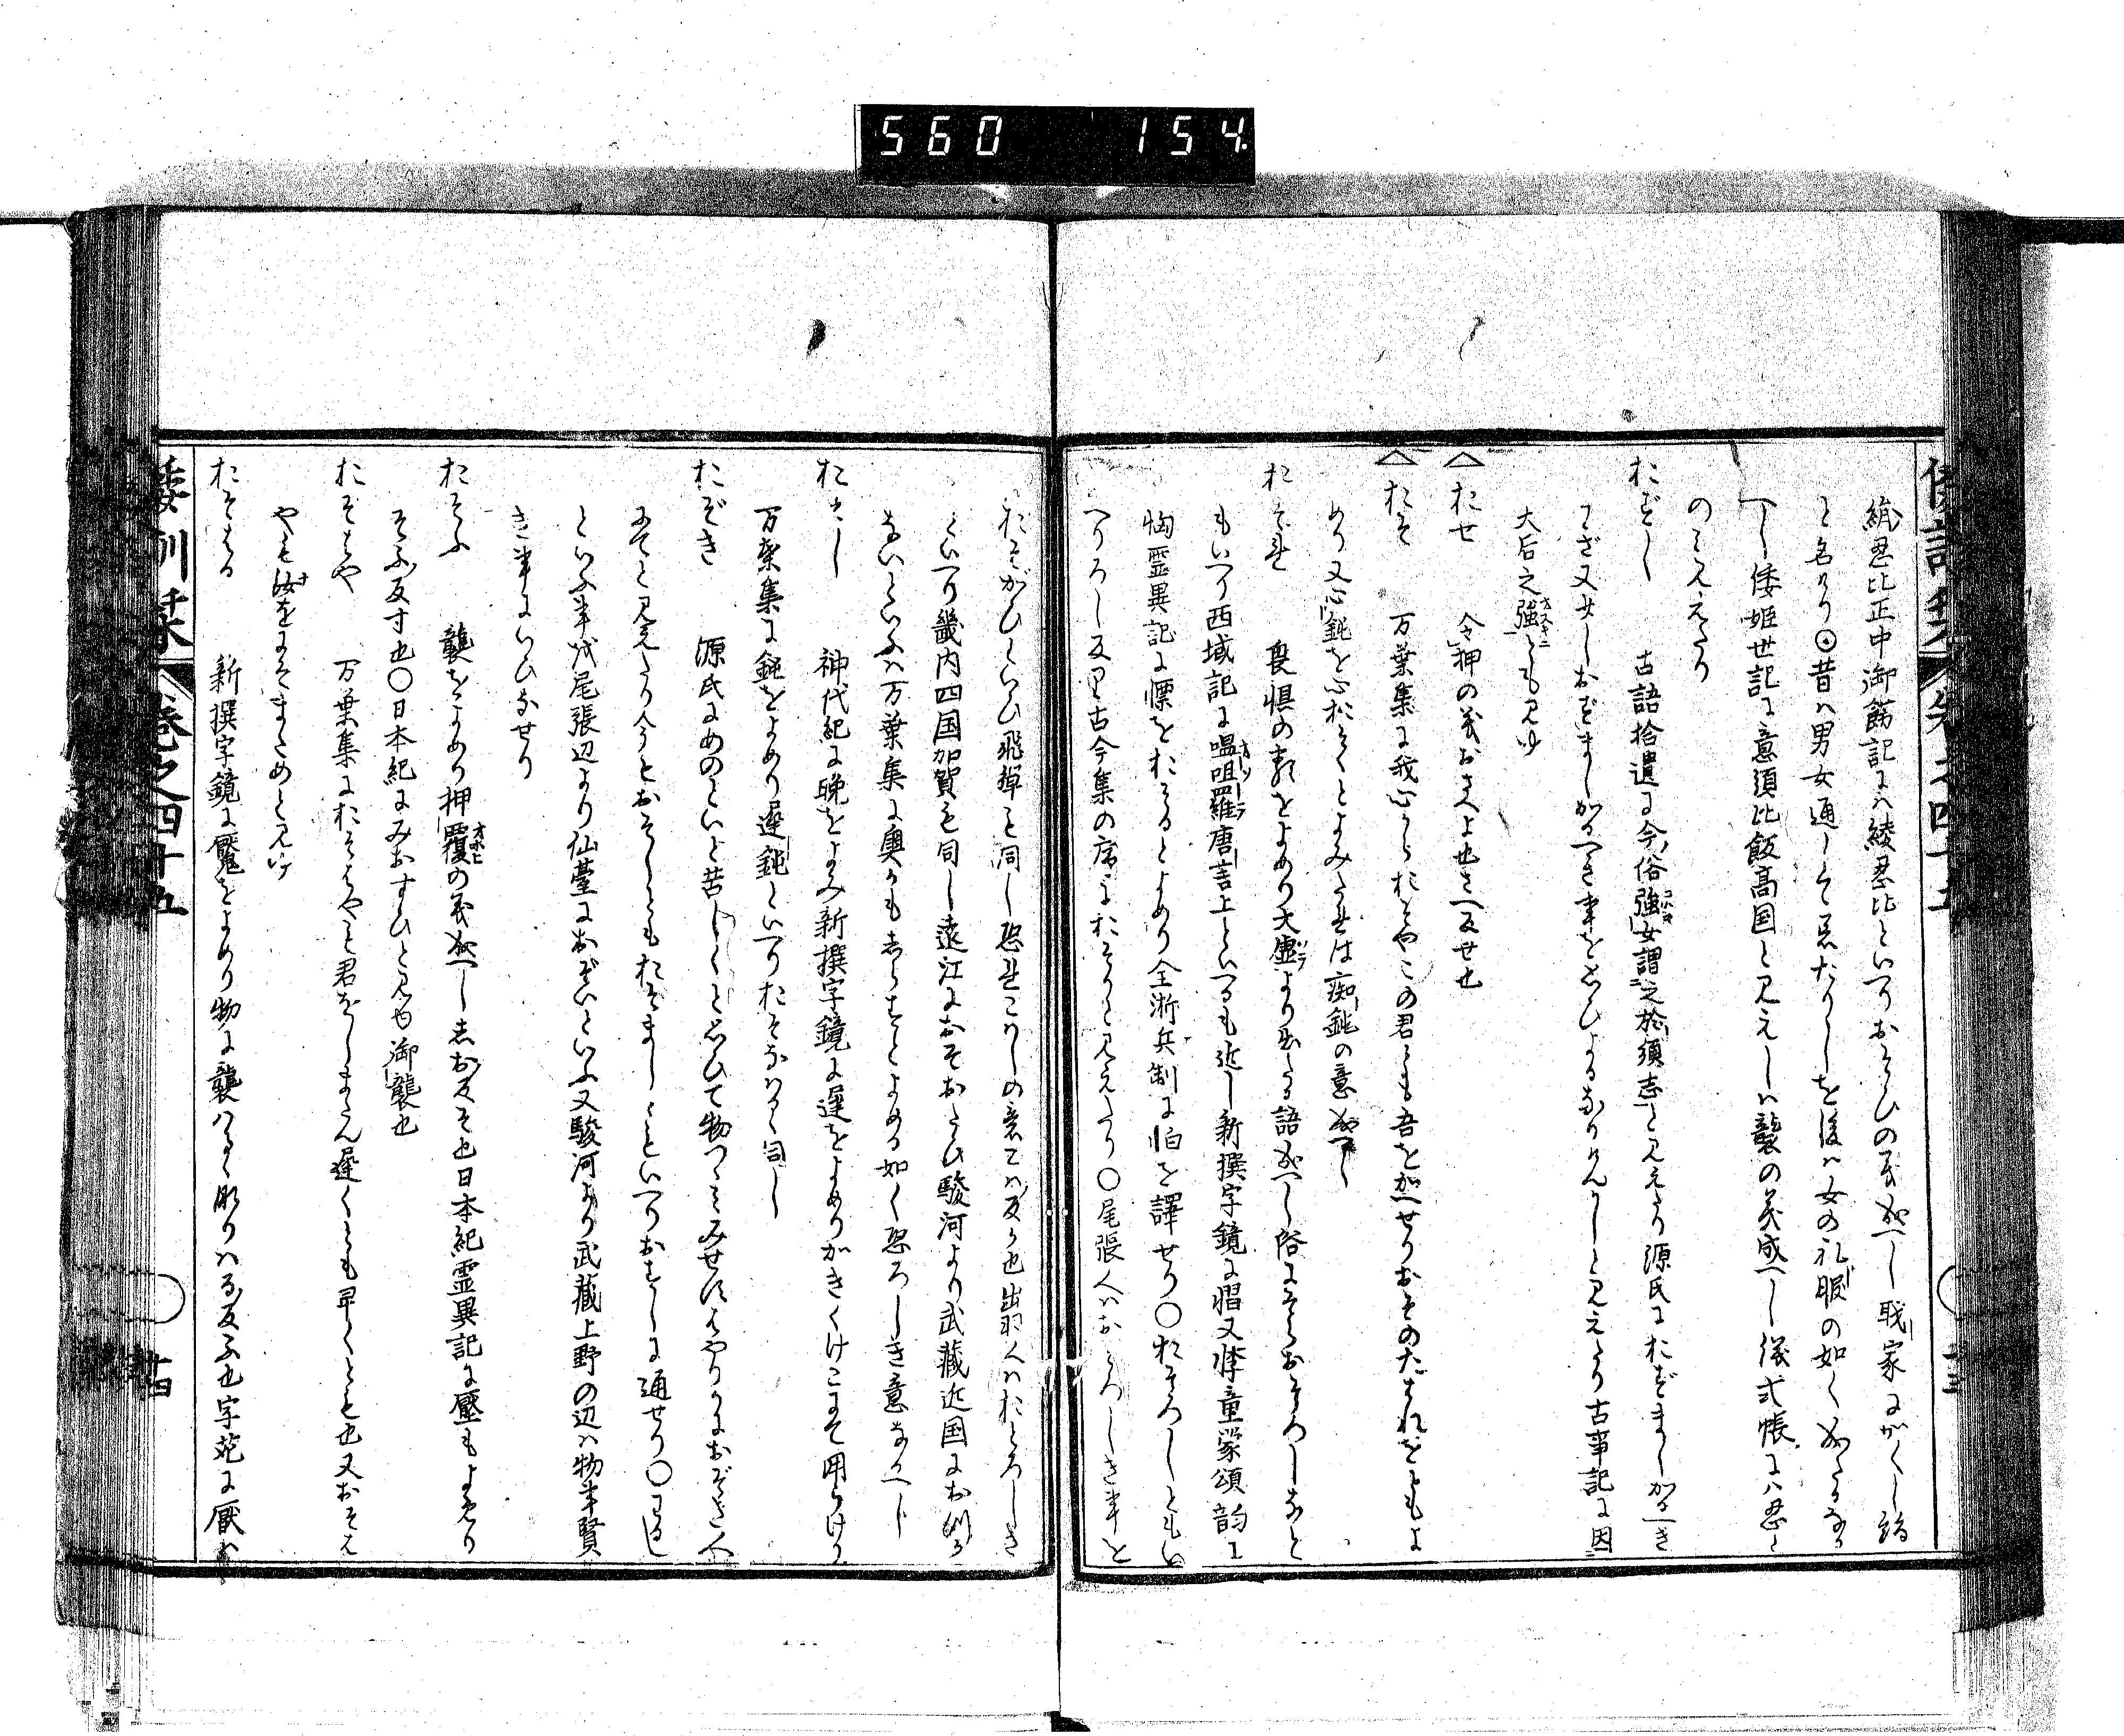 560 154
絹忍比正中御餝記に八綾忍比といへりおそひの義成へし 職家にがくし詞
と名けり⦿昔ハ男女通して忍たりしを後ハ女の礼服の如く成たるなる
へし倭姫世記に意須比飯高国と見えしハ襲の義成へし儀式帳にハ忍と
のミえたり
おぞし 古語拾遺に今俗強女謂之於須志と見えたり源氏におぞましかるへき
わざ又女しおぞましかるへき事をといひよるなりけんかしと見えたり古事記に因
大后之強ともみゆ
△おせ 令押の義おさへよ也さへ反せ也
△おそ 万葉集に我心からおそやこの君とも吾をかへせりおそのたはれをともよ
めり又心鈍を心おそくとよみたれは痴鈍の意成へし
おそれ 畏惧の類をよめり大虚より出たる語成へし俗にそらおそろしなと
もいへり西域記に嗢咀羅唐言上といへるも近し新撰字鏡に慴又悸童蒙頌韵に
恟霊異記に慓をおそるとよめり全浙兵制に怕を譯せり○おそろしともい
へりろし反り古今集の序におそりと見えたり○尾張人ハおとろしき事を
おそがひといひ飛騨も同し恐れこハしの意こハ反か也出羽人ハおとろしき
といへり畿内四国加賀も同し遠江におそおたひ駿河より武藏近国にお
ないといふハ万葉集に奥かもしらすとよめる如く恐ろしき意なるへし
おそし 神代紀に晩をよみ新撰字鏡に遅をよめりかきくけこまて用らけり
万葉集に鈍をよめり遅鈍といへりおそなハる同し
おぞき 源氏にめのといと苦しくと思ひて物つゝみせすはやりかにおぞき人
にてと見えたり今もおそしともおぞましともいへりおすしに通せり○わるし
といふ事を尾張辺より仙臺におぞいといふ又駿河より武藏上野の辺ハ物事賢
き事にいひなせり
おそふ 襲をよめり押覆の義成へしおほ反そ也日本紀霊異記に壓もよめり
そふ反す也○日本紀にみおすひと見ゆ御襲也
おそはや 万葉集におそはやも君をしまたん遅くとも早くとも也又おそは
やも汝をこそまためと見ゆ
おそはる 新撰字鏡に魘をよめり物に襲ハるゝ形りハる反ふ也字苑に厭ハ
倭訓栞 巻之四十五
廿四